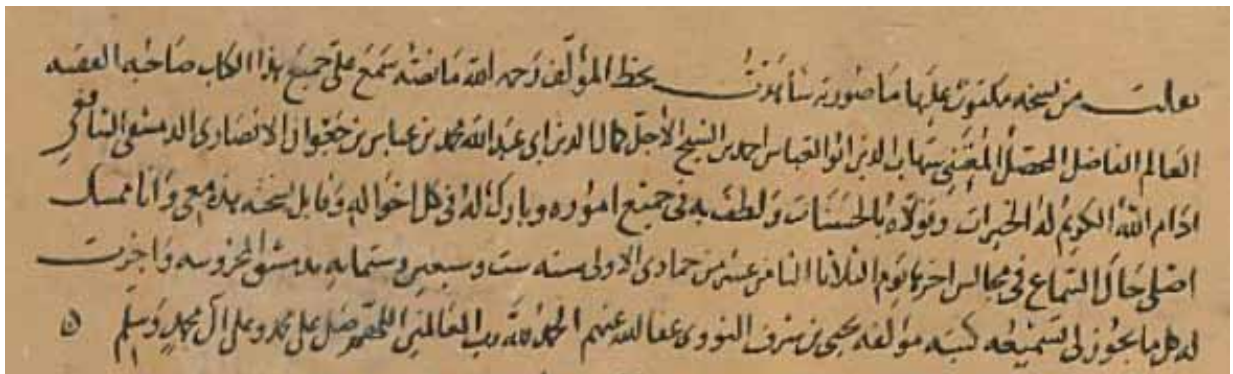 نقلت من نسخة مكتوب عليها ما صورته شاهدت بخط المؤلف رحمه الله ما نصه سمع علي جميع هذا الكتاب صاحبه الفقيه
العالم الفاضل المحصل المعتني شهاب الدين ابو العباس احمد بن الشيخ الاجل كمال الدين ابي عبد الله محمد بن عباس بن جعوان الانصاري الدمشقي الشافعي
ادام الله الكريم له الخيرات وتولاه بالحسنات ولطف به في جميع اموره وبارك له في كل احواله وقابل نسخته بهذه معي وانا ممسك
اصلي حال السماع في مجالس اخرها يوم الثلاثا الثامن عشر من جمادى الاولى سنة ست وسبعين وستمايه بدمشق المحروسه واجزت
له كل ما يجوز لي تسميعه كتبه مؤلفه يحيى بن شرف النووي عفا الله عنهم الحمد لله رب العالمين اللهم صل على محمد وعلى آل محمد وسلم